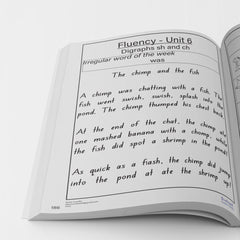 Fluency - Unit 6
Digraphs sh and ch
Irregular word of the week
was
The chimp and the fish
A chimp was chatting with a fish. The
fish went swish, swish, splash into the
pond. The chimp thumped his
At the end of the chat, the chimp ate
one mashed banana with a chomp, while
the fish did spot a shrimp in the pond!
As quick as a flash, the chimp did
into the pond at ate the shrimp